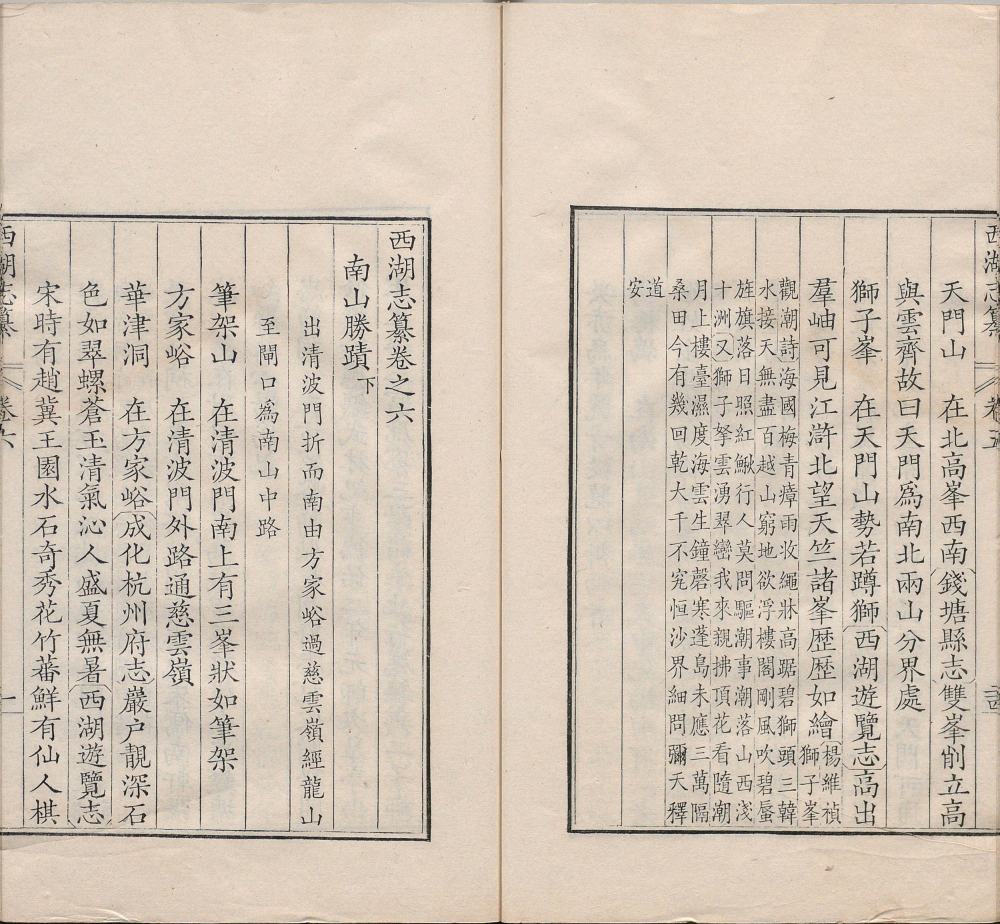 西湖志纂 卷五
天門山 在北高峯西南〔錢塘縣志〕雙峯削立高
與雲齊故曰天門爲南北兩山分界處
獅子峯 在天門山勢若蹲獅〔西湖遊覽志〕高出
羣岫可見江滸北望天竺諸峯歷歷如繪〔楊維禎
獅子峯
觀潮詩〕海國梅青瘴雨收繩牀高踞碧獅頭三韓
水接天無盡百越山窮地欲浮樓閣剛風吹碧蜃
旌旗落日照紅鰍行人莫問驅潮事潮落山西淺
十洲〔又〕獅子拏雲湧翠巒我來親拂頂花看隨潮
月上樓臺濕度海雲生鐘磬寒蓬島未應三萬隔
桑田今有幾回乾大千不究恒沙界細問彌天釋
道
安
西湖志纂卷之六
南山勝蹟下
出清波門折而南由方家峪過慈雲嶺經龍山
至閘口爲南山中路
筆架山 在清波門南上有三峯狀如筆架
方家峪 在清波門外路通慈雲嶺
華津洞 在方家峪〔成化杭州府志〕巖户靚深石
色如翠螺蒼玉清氣沁人盛夏無暑〔西湖遊覽志〕
宋時有趙冀王園水石奇秀花竹蕃鮮有仙人棋
西湖志纂 卷六 一